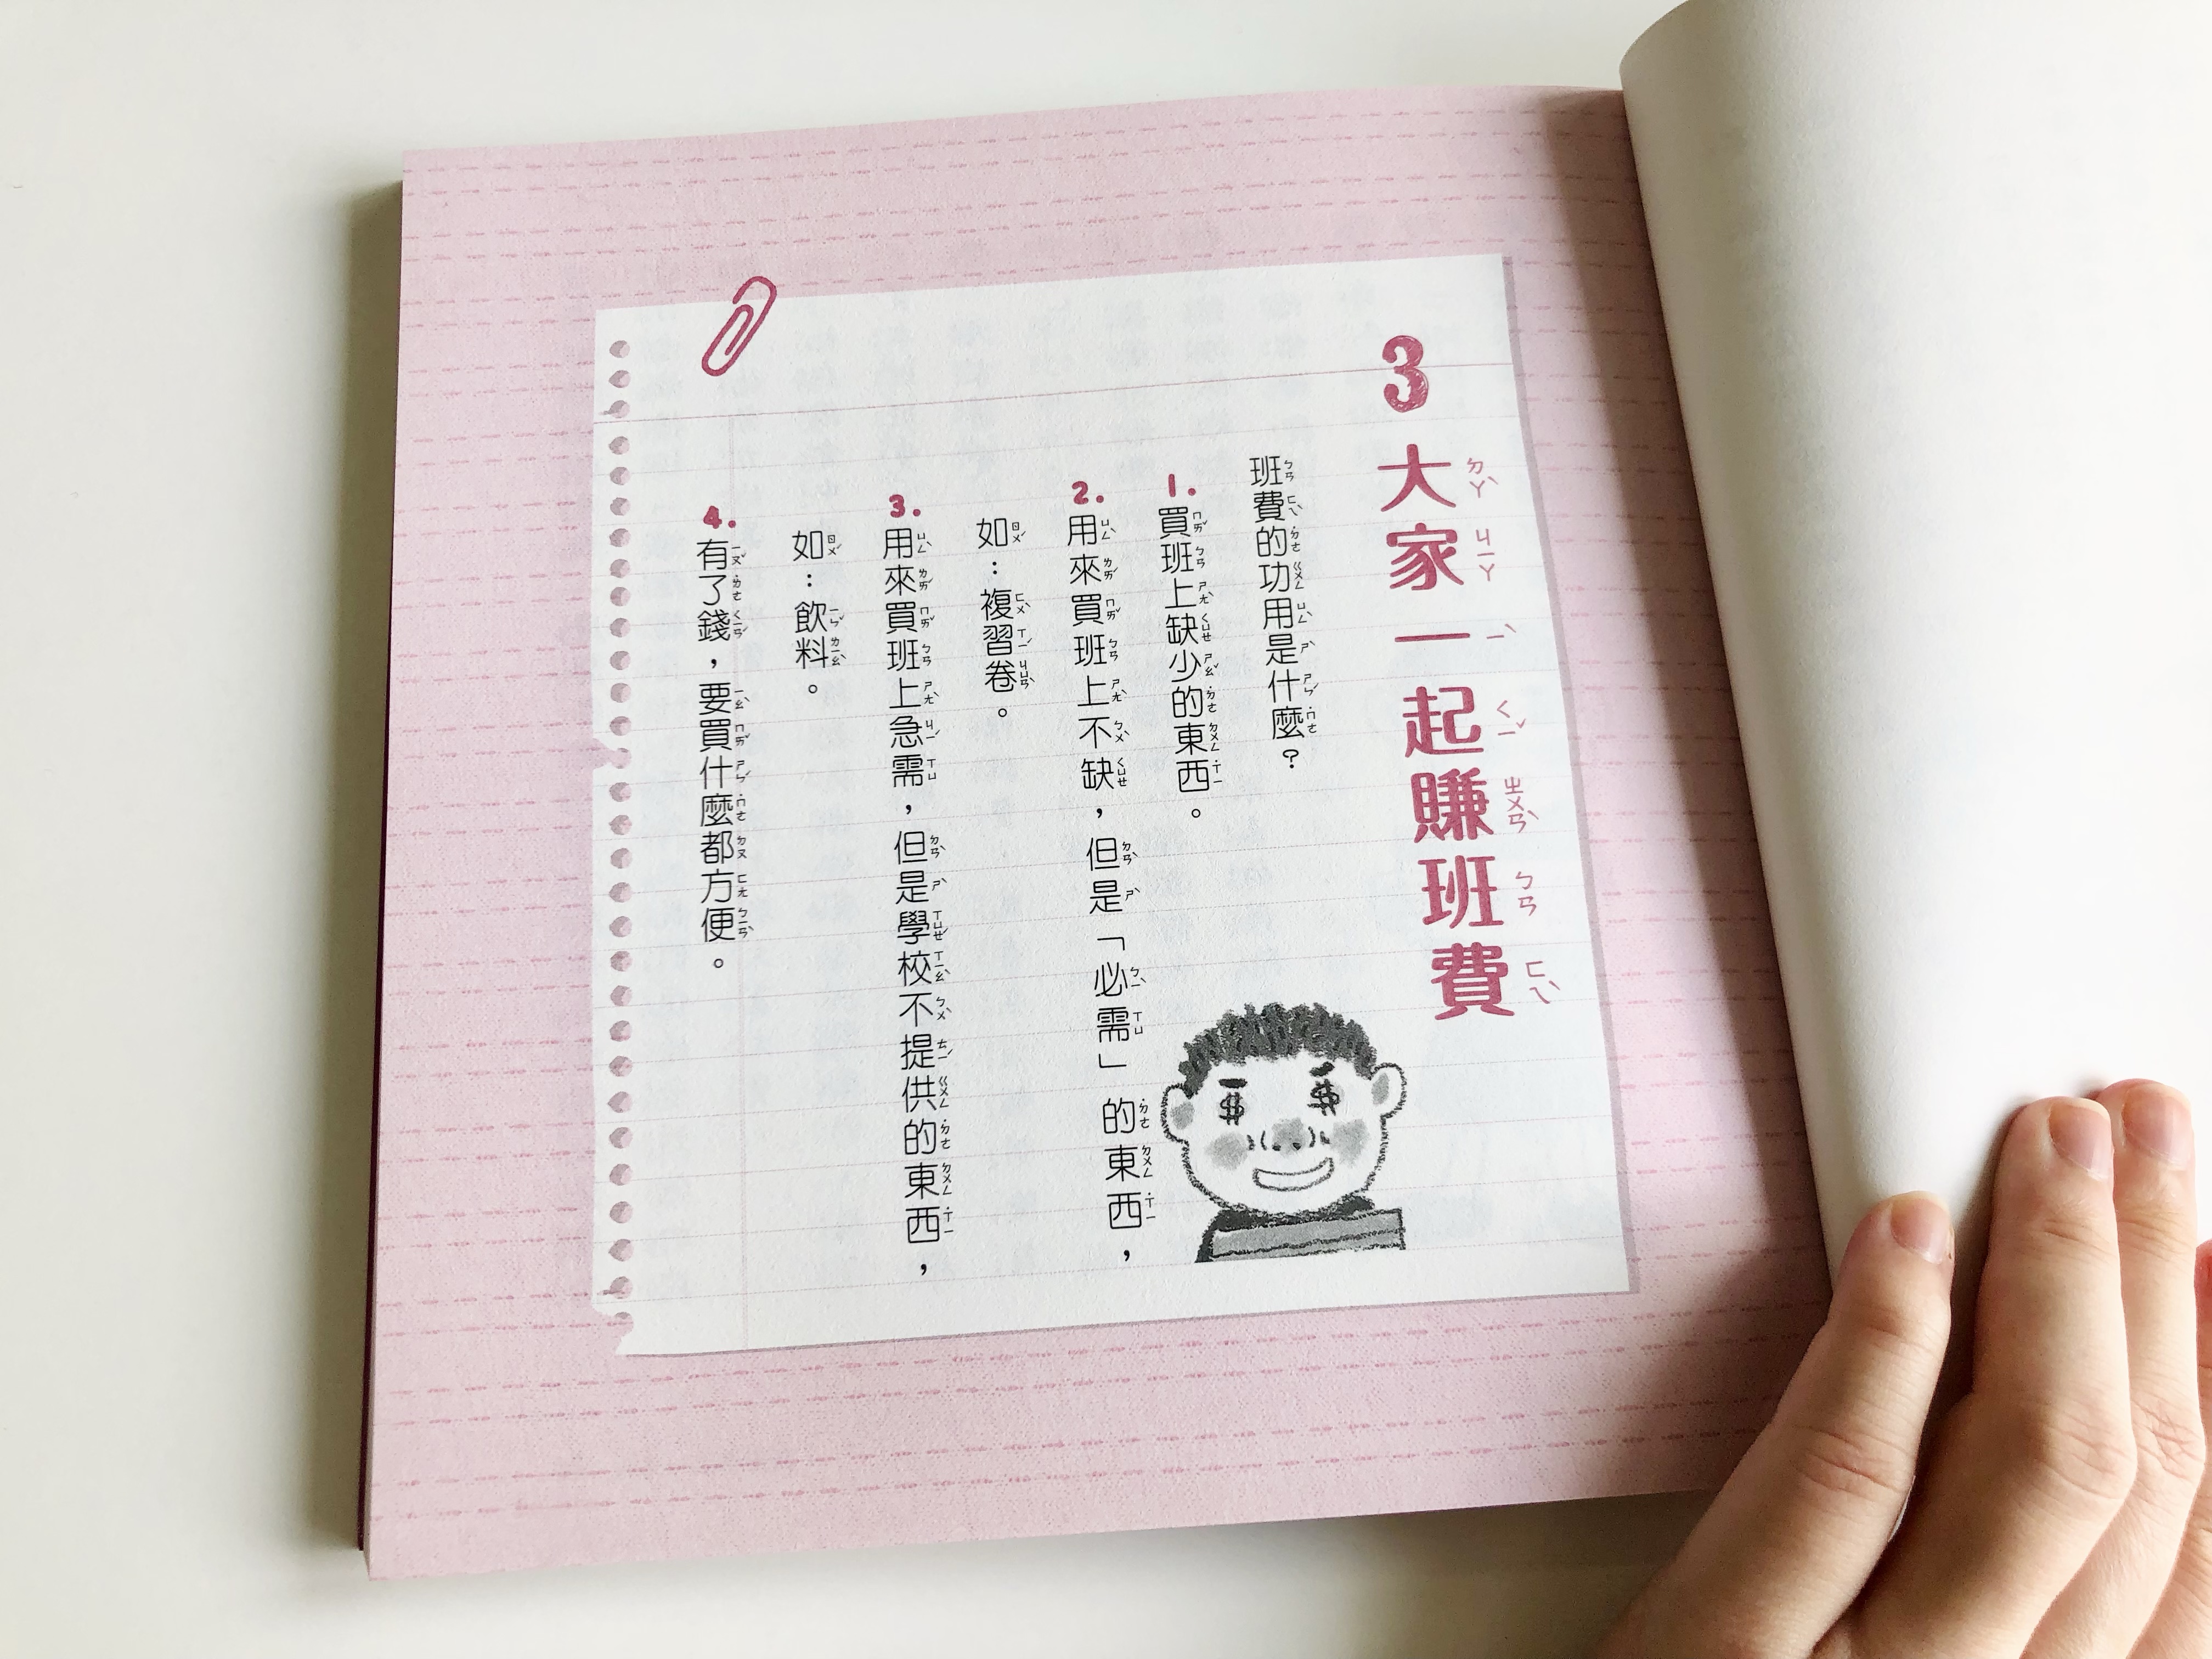 3 大家一起賺班費
班費的功用是什麼？
1. 買班上缺少的東西。
2. 用來買班上不缺，但是「必需」的東西，
如：複習卷。
3. 用來買班上急需，但是學校不提供的東西，
如：飲料。
4. 有了錢，要買什麼都方便。